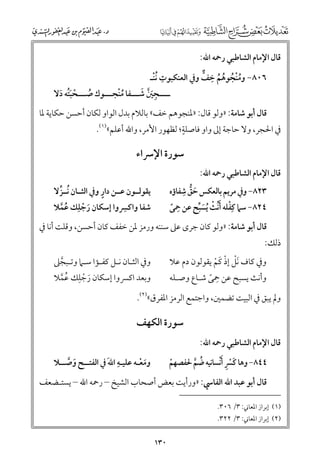 تَعْدِيلَاتُ بَعْضِ شُرَّاحِ الشَّاطِبِيَّةِ
د. عَبْدُ القَيُّومِ بن عَبْدِ الغَفُورِ السِّنْدِي
قال الإمام الشاطبي رحمه الله:
٨٠٦- وَمُنْجُوهُمُ خِفٌّ وفي العنكبوتِ نُنْـ
قال أبو شامة: «ولو قال: «لمنجوهم خف» باللام بدل الواو لكان أحسن حكاية لما
في الحجر، ولا حاجة إلى واو فاصلةٍ؛ لظهور الأمر، والله أعلم»(١).
سورة الإسراء
قال الإمام الشاطبي رحمه الله:
٨٢٣- وفي مريم بالعكس حَقٌّ شِفاؤه يقولون عن دارٍ وفي الثان نُزِّلا
٨٢٤- سما كِفْلُه أَنِّثْ يُسَبِّحُ عن حِمىً شفا واكسروا إسكان رَجْلِكَ عُمَّلا
قال أبو شامة: «ولو كان جرى على سننه ورمز لمن خفف كان أحسن، وقلت أنا في
ذلك:
وبعد اكسروا إسكان رَجْلِكَ عُمَّلا
ولم يبق في البيت تضمين، واجتمع الرمز المفرق»(٢).
سورة الكهف
قال الإمام الشاطبي رحمه الله:
٨٤٤- وها كَسْرِ أَنْسانيه ضُمَّ لحفصهمْ وَمَعْهُ عليهِ اللهَ في الفتح وَصَّلا
قال أبو عبد الله الفاسي: «ورأيت بعض أصحاب الشيخ – رحمه الله – يستضعف
(١) إبراز المعاني: ٣/ ٣٠٦.
(٢) إبراز المعاني: ٣/ ٣٢٢.
١٣٠